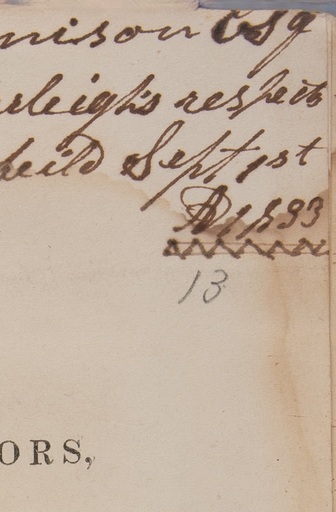 nison Esq
rleigh's respects
heild Sept 1st
AD 1833
13
ORS,